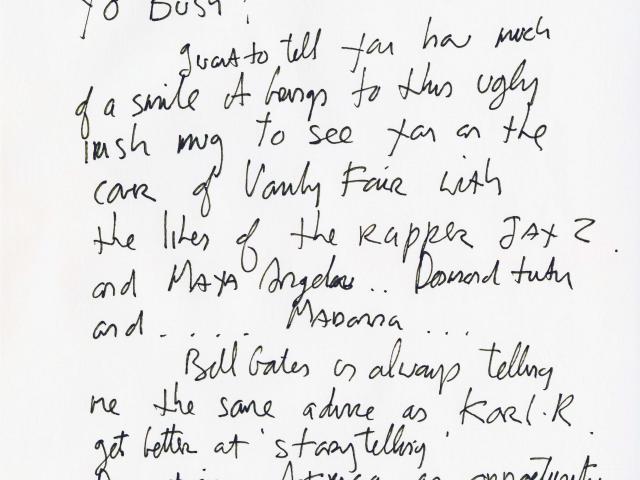 Yo Bush!
I want to tell you how much
of a smile it brings to this ugly
irish mug to see you on the
cover of Vanity Fair with
the likes of the RAPPER JAY Z
and MAYA Angelou.. Desmond tutu
and ..... MADONNA ...
Bill Gates is always telling
me the same advice as KARL.R.
get better at 'story telling'
Africa as opportunity